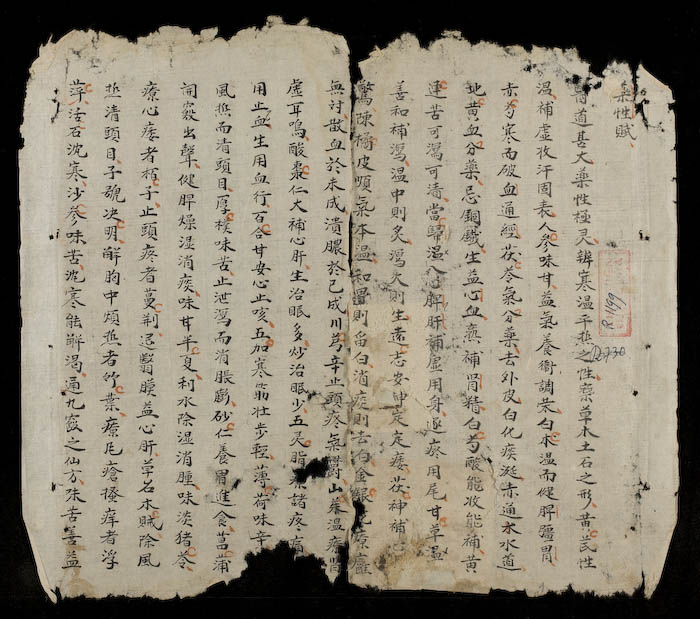 藥性賦
醫道甚大藥性極灵辨寒温平熱之性察草木土石之形黄芪性
温補虚收汗固表人參味甘益氣養衛調荣白术温而健脾彊胃
赤芍寒而破血通經茯苓氣分藥去外皮白化痰涎赤通水道
地黄血分藥忌銅鐵生益心血熟補腎精白芍酸能收能補黄
連苦可瀉可清當歸温入心脾肝補虚用身逐瘀用尾甘草温
善和補瀉温中則炙瀉火則生遠志安神定痿茯神補心
驚陳橘皮順氣本温和胃則留白消痰則去白金銀花療癰
無討散血於未成潰膿於已成川芎辛止頭疼氣鬱山藥温療腎
虚耳鳴酸棗仁大補心肝生治眠多炒治眠少五灵脂療諸疼痛
用止血生用血行百合甘安心止咳五加寒筋壯步輕薄荷味辛
風熱而清頭目厚樸味苦止泄瀉而消脹膨砂仁養胃進食菖蒲
竅出聲健脾燥湿消痰味甘半夏利水除湿消腫味淡猪苓
療心痿者栀子止頭疼者蔓荆退翳膜益心肝草名木賊除風
熱清頭目子號决明解胸中煩熱者竹葉療尼瘡擦痒者浮
萍滑石沈寒沙參味苦沈寒能解渴通九竅之仙方味苦善益
R.1199
D.730